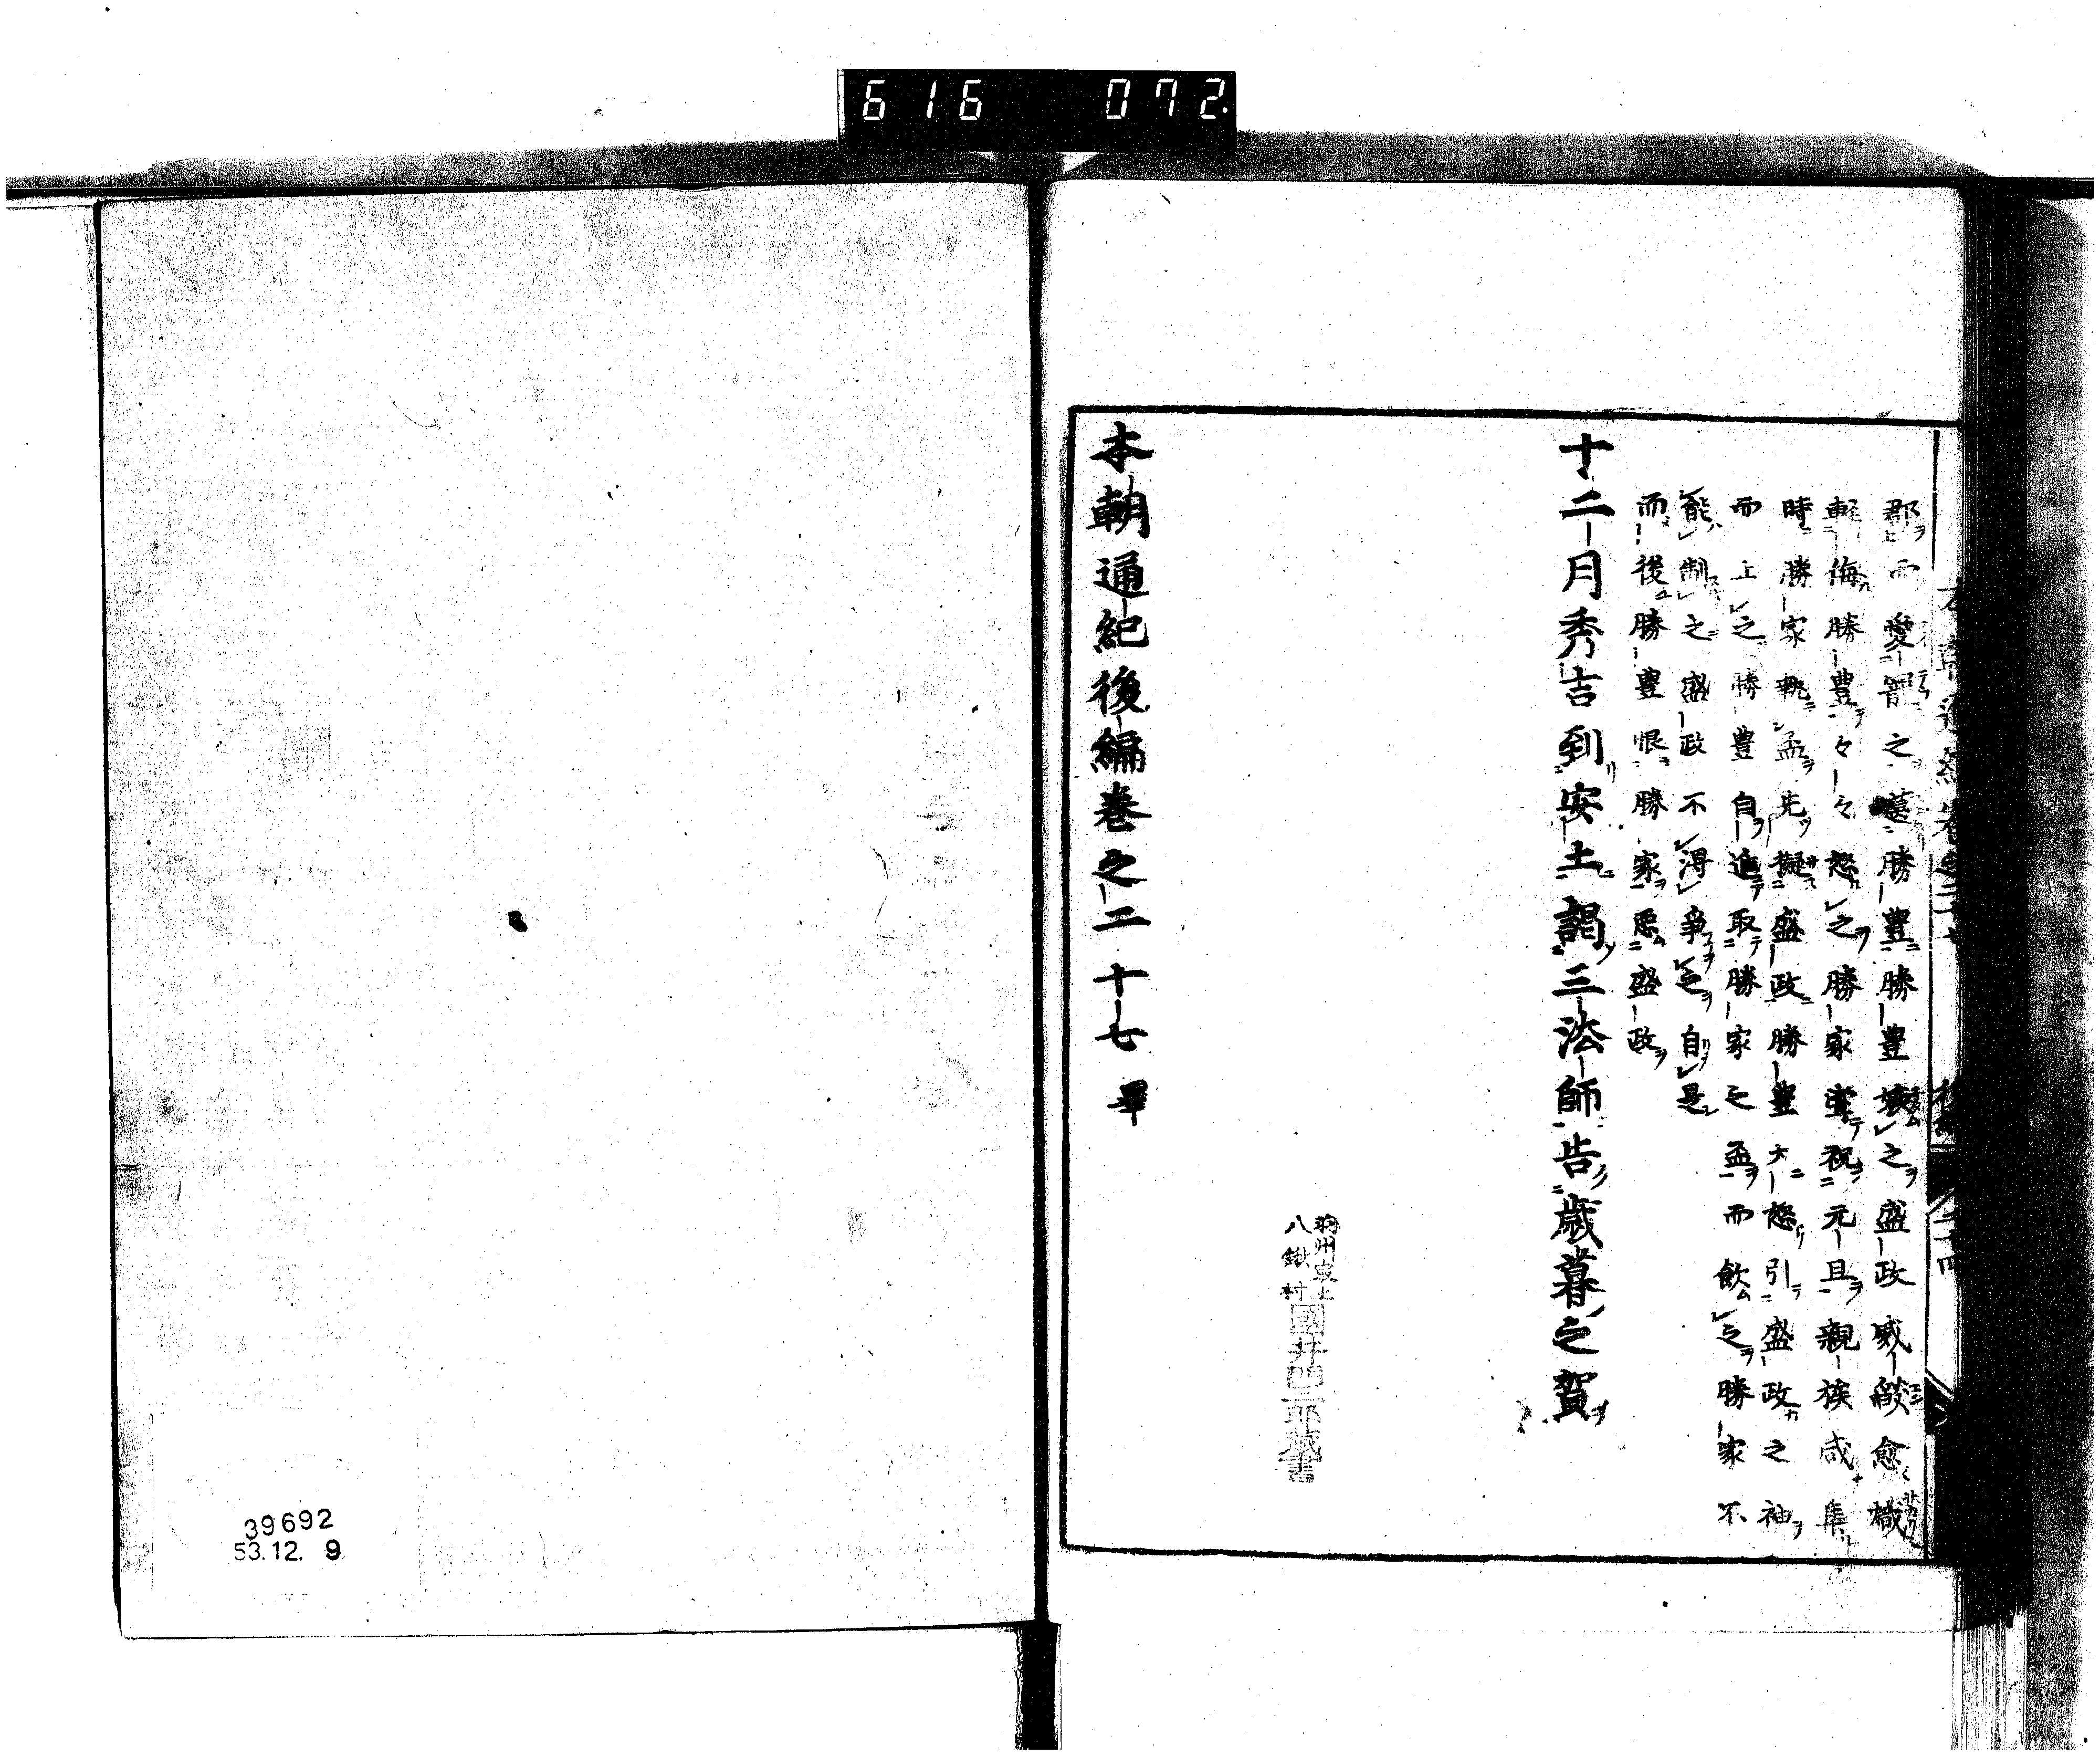 616 072
郡而愛之勝豊勝豊壊之盛政威愈熾
軽侮勝豊々々怒之勝家嘗祝元旦親族咸集
時勝家執盃先擬盛政勝豊大怒引盛政之袖
而止之勝豊自進取勝家之盃而飲之勝家不
能制之盛政不得争之自是
而後勝豊恨勝家悪盛政
十二月秀吉到安土謁三法師告歳暮之賀
羽州最上
八鍬村
國井四郎蔵書
本朝通紀後編巻之二十七畢
39692
53.12.9